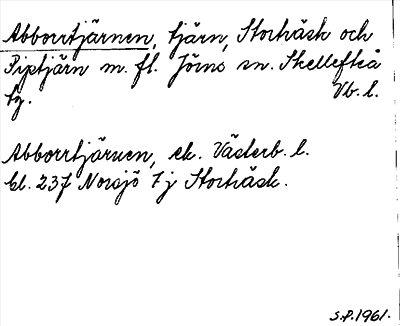 Abborrtjärnen, tjärn, Storträsk och
Piptjärn m. fl. Jörns sn. Skellefteå
tg. Vb. l.
Abborrtjärnen, ek. Västerb. l.
bl. 237 Norsjö 7 j Storträsk.
S.P. 1961.